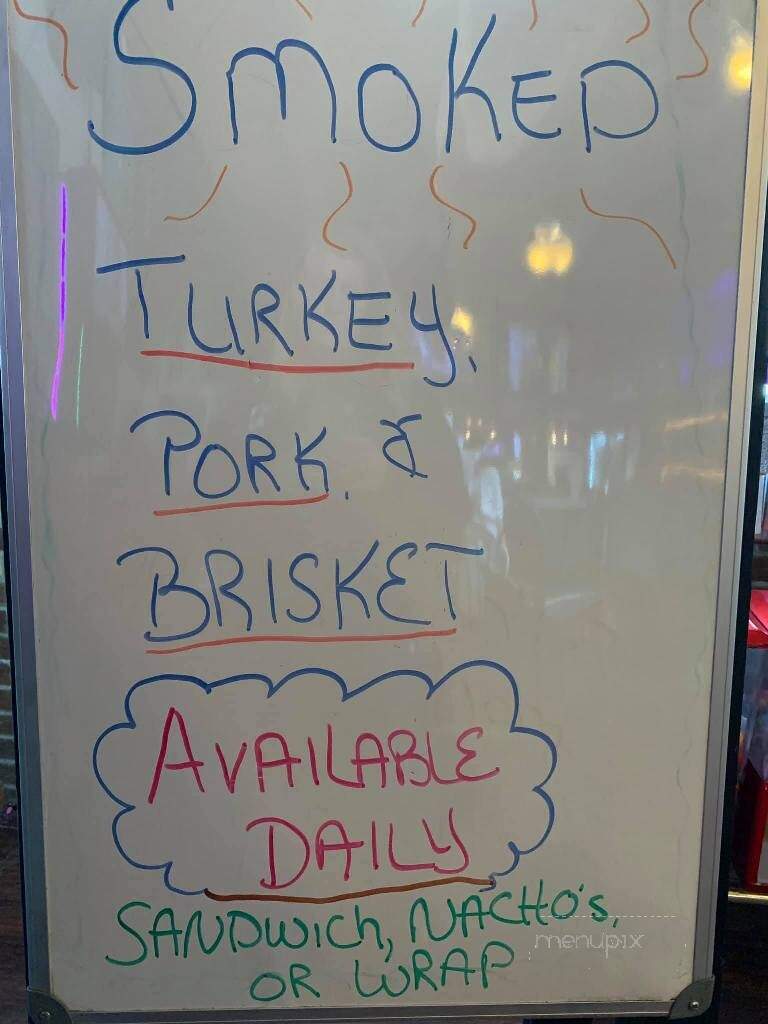 SMOKED
TURKEY,
PORK, &
BRISKET
AVAILABLE
DAILY
SANDWICH, NACHO'S,
OR WRAP
menupix